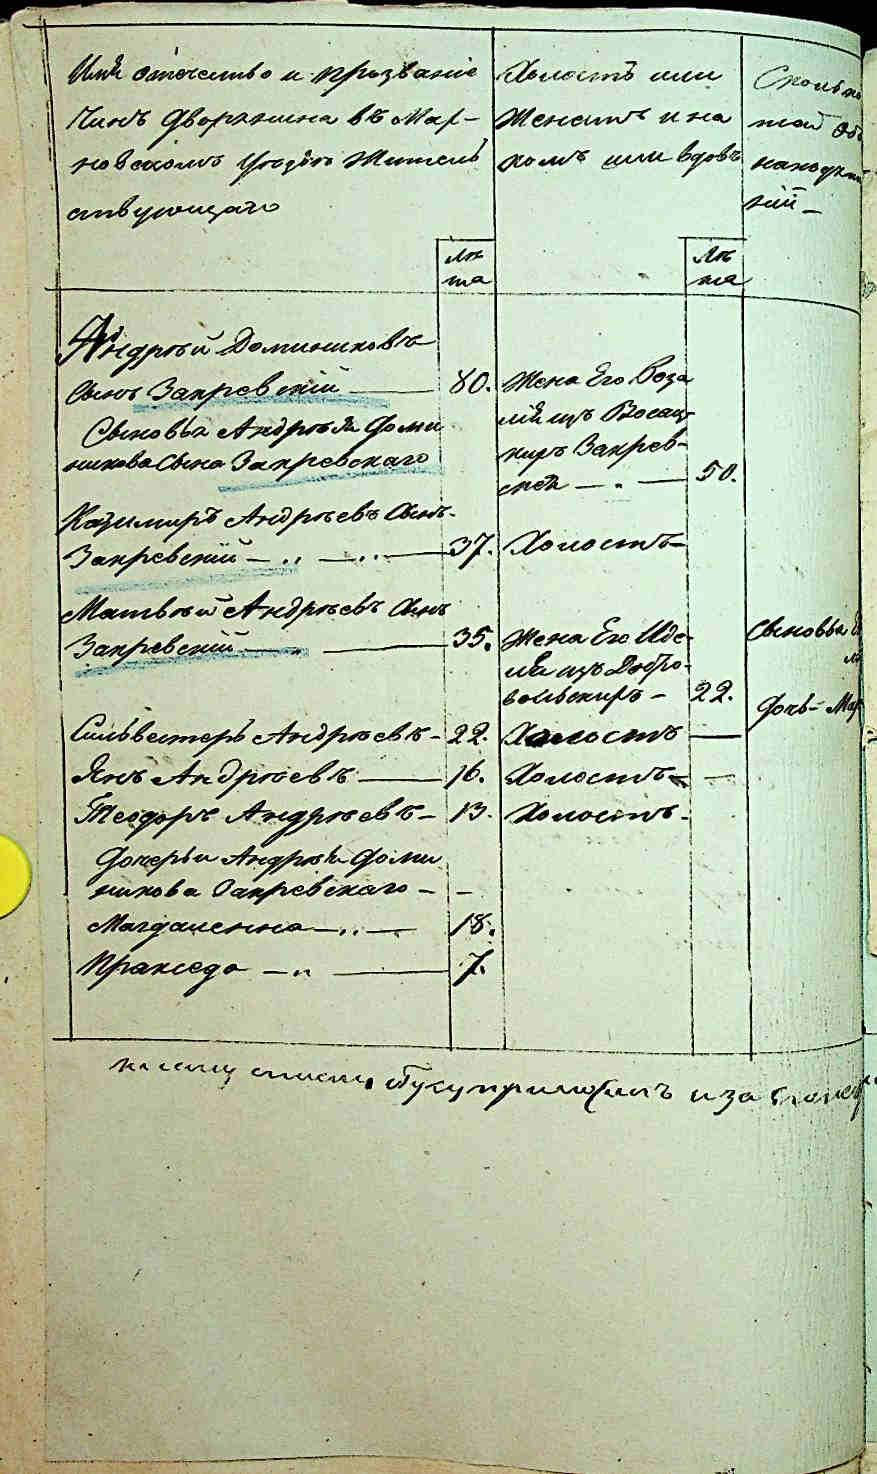 Имя отечество и прозваніе
Чинъ дворянина въ Мар-
новскомъ уѣздѣ жителъ
ствующаго
Холостъ или
женатъ и на
комъ или вдовъ
Сколько
находи
ній
лѣ
та
лѣ
та
Андрѣй Доминиковъ
Сынъ Закревскій — 80.
Жена Его Роза
лія изъ
Закрев-
ская — 50.
Сыновья Андрѣя Доми
никова Сына Закревскаго
Казимиръ Андрѣевъ Сынъ
Закревскій — 37. Холостъ
Матвѣй Андрѣевъ Сынъ
Закревскій — 35.
Жена Его Иде-
лія изъ Добро-
вольскихъ — 22.
Сыновья
Дочь - Мар
Сильвестеръ Андрѣевъ - 22. Холостъ —
Янъ Андрѣевъ — 16. Холостъ —
Теодоръ Андрѣевъ - 13. Холостъ -
Дочерьи Андрѣя Доми
никова Закревскаго - -
Магдаленна — 18.
Праксeда — 7.
къ сему списку руку приложилъ и за